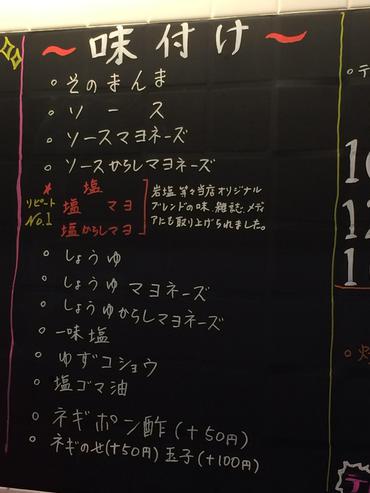 ～味付け～
○ そのまんま
○ ソース
○ ソースマヨネーズ
○ ソースからしマヨネーズ
* 塩
リピート No.1
塩 マヨ
塩からしマヨ
岩塩 等々当店オリジナル
ブレンドの味、雑誌、メディ
アにも取り上げられました。
○ しょうゆ
○ しょうゆ マヨネーズ
○ しょうゆからしマヨネーズ
○ 一味塩
○ ゆずコショウ
○ 塩ゴマ油
○ ネギポン酢(+50円)
○ ネギのせ(+50円) 玉子(+100円)
○ テ
1
12
1
○ 焼
テ